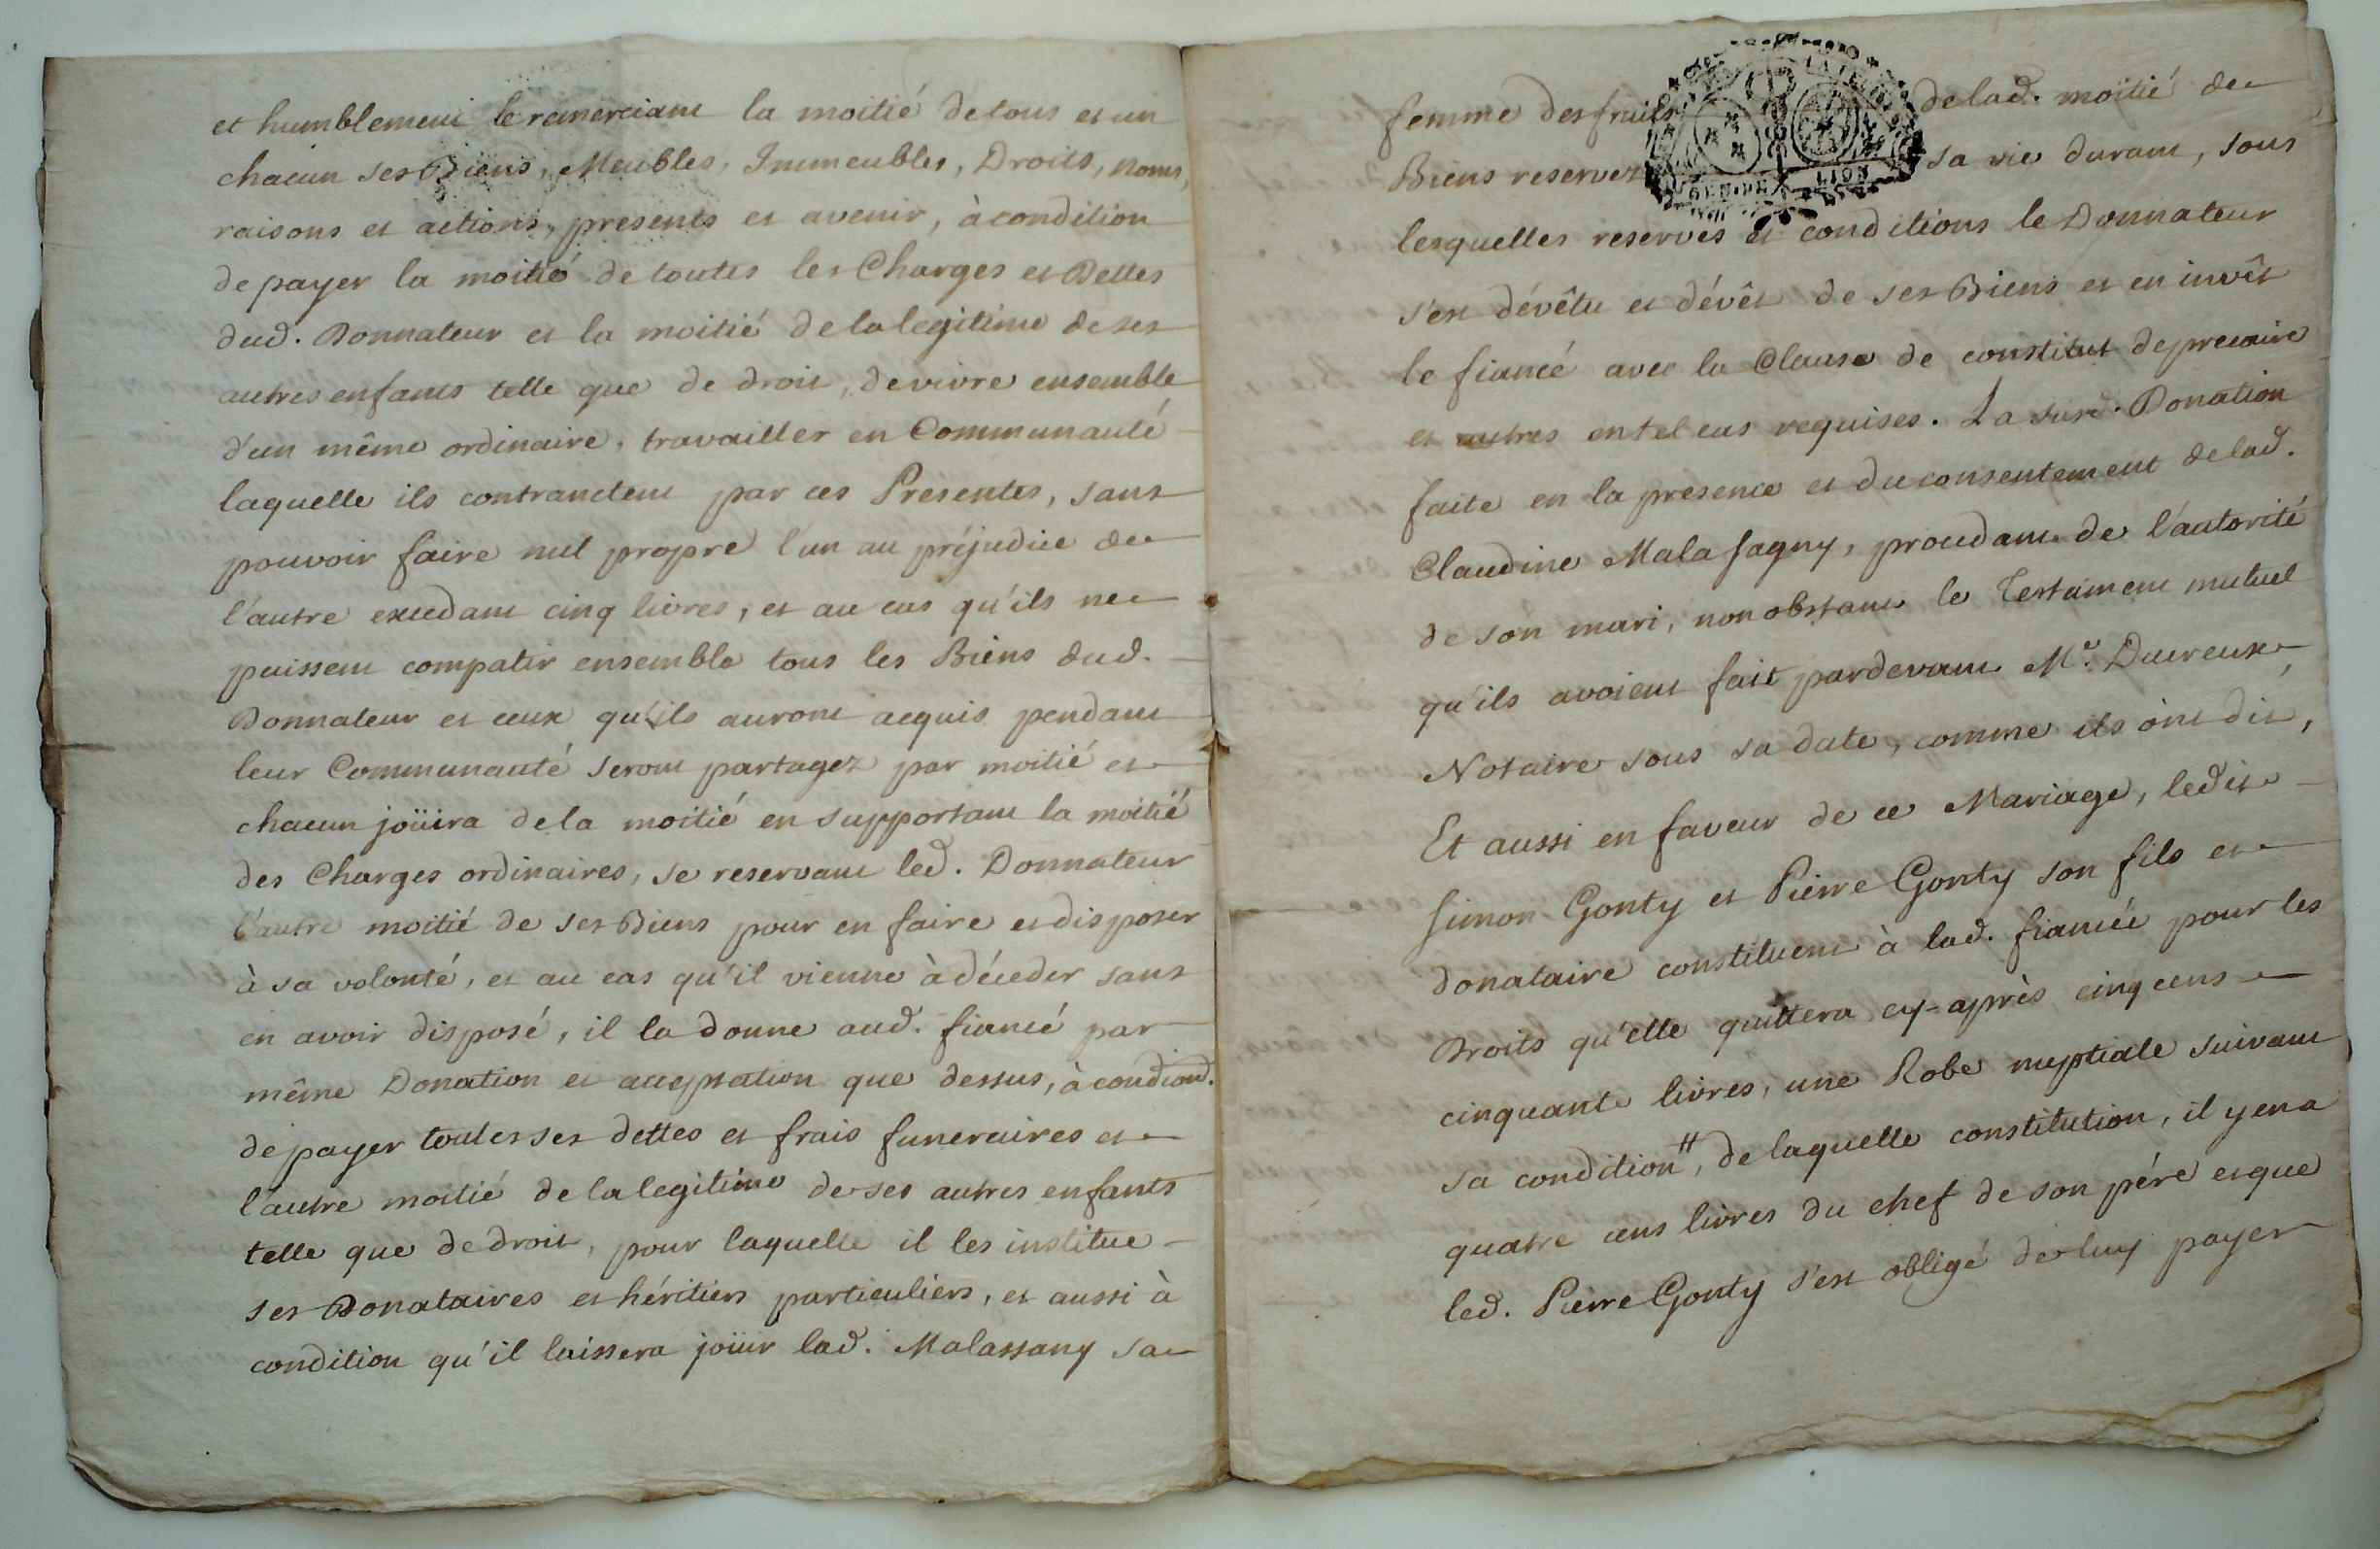 et humblement le remerciant la moitié de tous et un
chacun ses Biens, Meubles, Immeubles, Droits, noms,
raisons et actions, presents et avenir, à condition
de payer la moitié de toutes les Charges et Dettes
dud. Donnateur et la moitié de la legitime de ses
autres enfants telle que de droit, de vivre ensemble
d'un même ordinaire, travailler en Communauté
laquelle ils contractent par ces Presentes, sans
pouvoir faire nul propre l'un au préjudice de
l'autre excedant cinq livres, et au cas qu'ils ne
puissent compatir ensemble tous les Biens dud.
Donnateur et ceux qu'ils auront acquis pendant
leur Communauté seront partagez par moitié et
chacun joüira de la moitié en supportant la moitié
des Charges ordinaires, se reservant led. Donnateur
l'autre moitié de ses Biens pour en faire et disposer
à sa volonté, et au cas qu'il vienne à déceder sans
en avoir disposé, il la donne aud. fiancé par
même Donation et acceptation que dessus, à condion.
de payer toutes ses dettes et frais funeraires et
l'autre moitié de la legitime de ses autres enfants
telle que de droit, pour laquelle il les institue
ses Donataires et héritiers particuliers, et aussi à
condition qu'il laissera joüir lad. Malassany sa
femme des fruits de lad. moitié de
Biens reservez sa vie durant, sous
lesquelles reserves et conditions le Donnateur
s'est dévêtu et dévêt de ses Biens et en invêt
le fiancé avec la Clause de constitut de precaire
et autres en tel cas requises. La susd. Donation
faite en la presence et du consentement de lad.
Claudine Malasagny, procedant de l'autorité
de son mari, nonobstant le Testament mutuel
qu'ils avoient fait pardevant Me. Ducreux
Notaire sous sa date, comme ils ont dit,
Et aussi en faveur de ce Mariage, ledit
Simon Gonty et Pierre Gonty son fils et
donataire constituent à lad. fiancée pour les
Droits qu'elle quittera cy-après cinq cens
cinquante livres, une Robe nuptiale suivant
sa condition #, de laquelle constitution, il y en a
quatre cens livres du chef de son pére et que
led. Pierre Gonty s'est obligé de luy payer